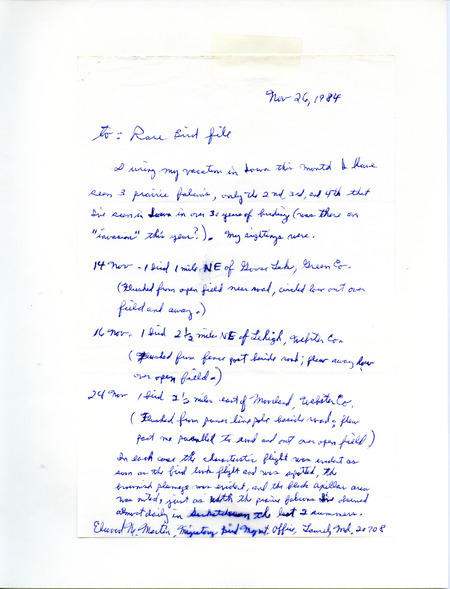 Nov 26, 1984
to: Rare Bird file
During my vacation in Iowa this month I have
seen 3 prairie falcons, only the 2nd, 3rd, and 4th that
I've seen in Iowa in over 30 years of birding (was there an
"invasion" this year?). My sightings were:
14 Nov - 1 bird 1 mile NE of Goose Lake, Greene Co.
(Flushed from open field near road, circled low out over
field and away.)
16 Nov. 1 bird 2 1/2 miles NE of Lehigh, Webster Co.
(Flushed from fence post beside road; flew away low
over open field.)
24 Nov 1 bird 2 1/2 miles east of Moorland, Webster Co.
(Flushed from power line pole beside road; flew
past me parallel to road and out over open field)
In each case the characteristic flight was evident as
soon as the bird took flight and was spotted, the
brownish plumage was evident, and the black axillar area
was noted, just as with the prairie falcons I've
almost daily in Saskatchewan the last 2 summers.
Elwood M. Martin, Migratory Bird Mgmt. Office, Laurel, Md. 20708